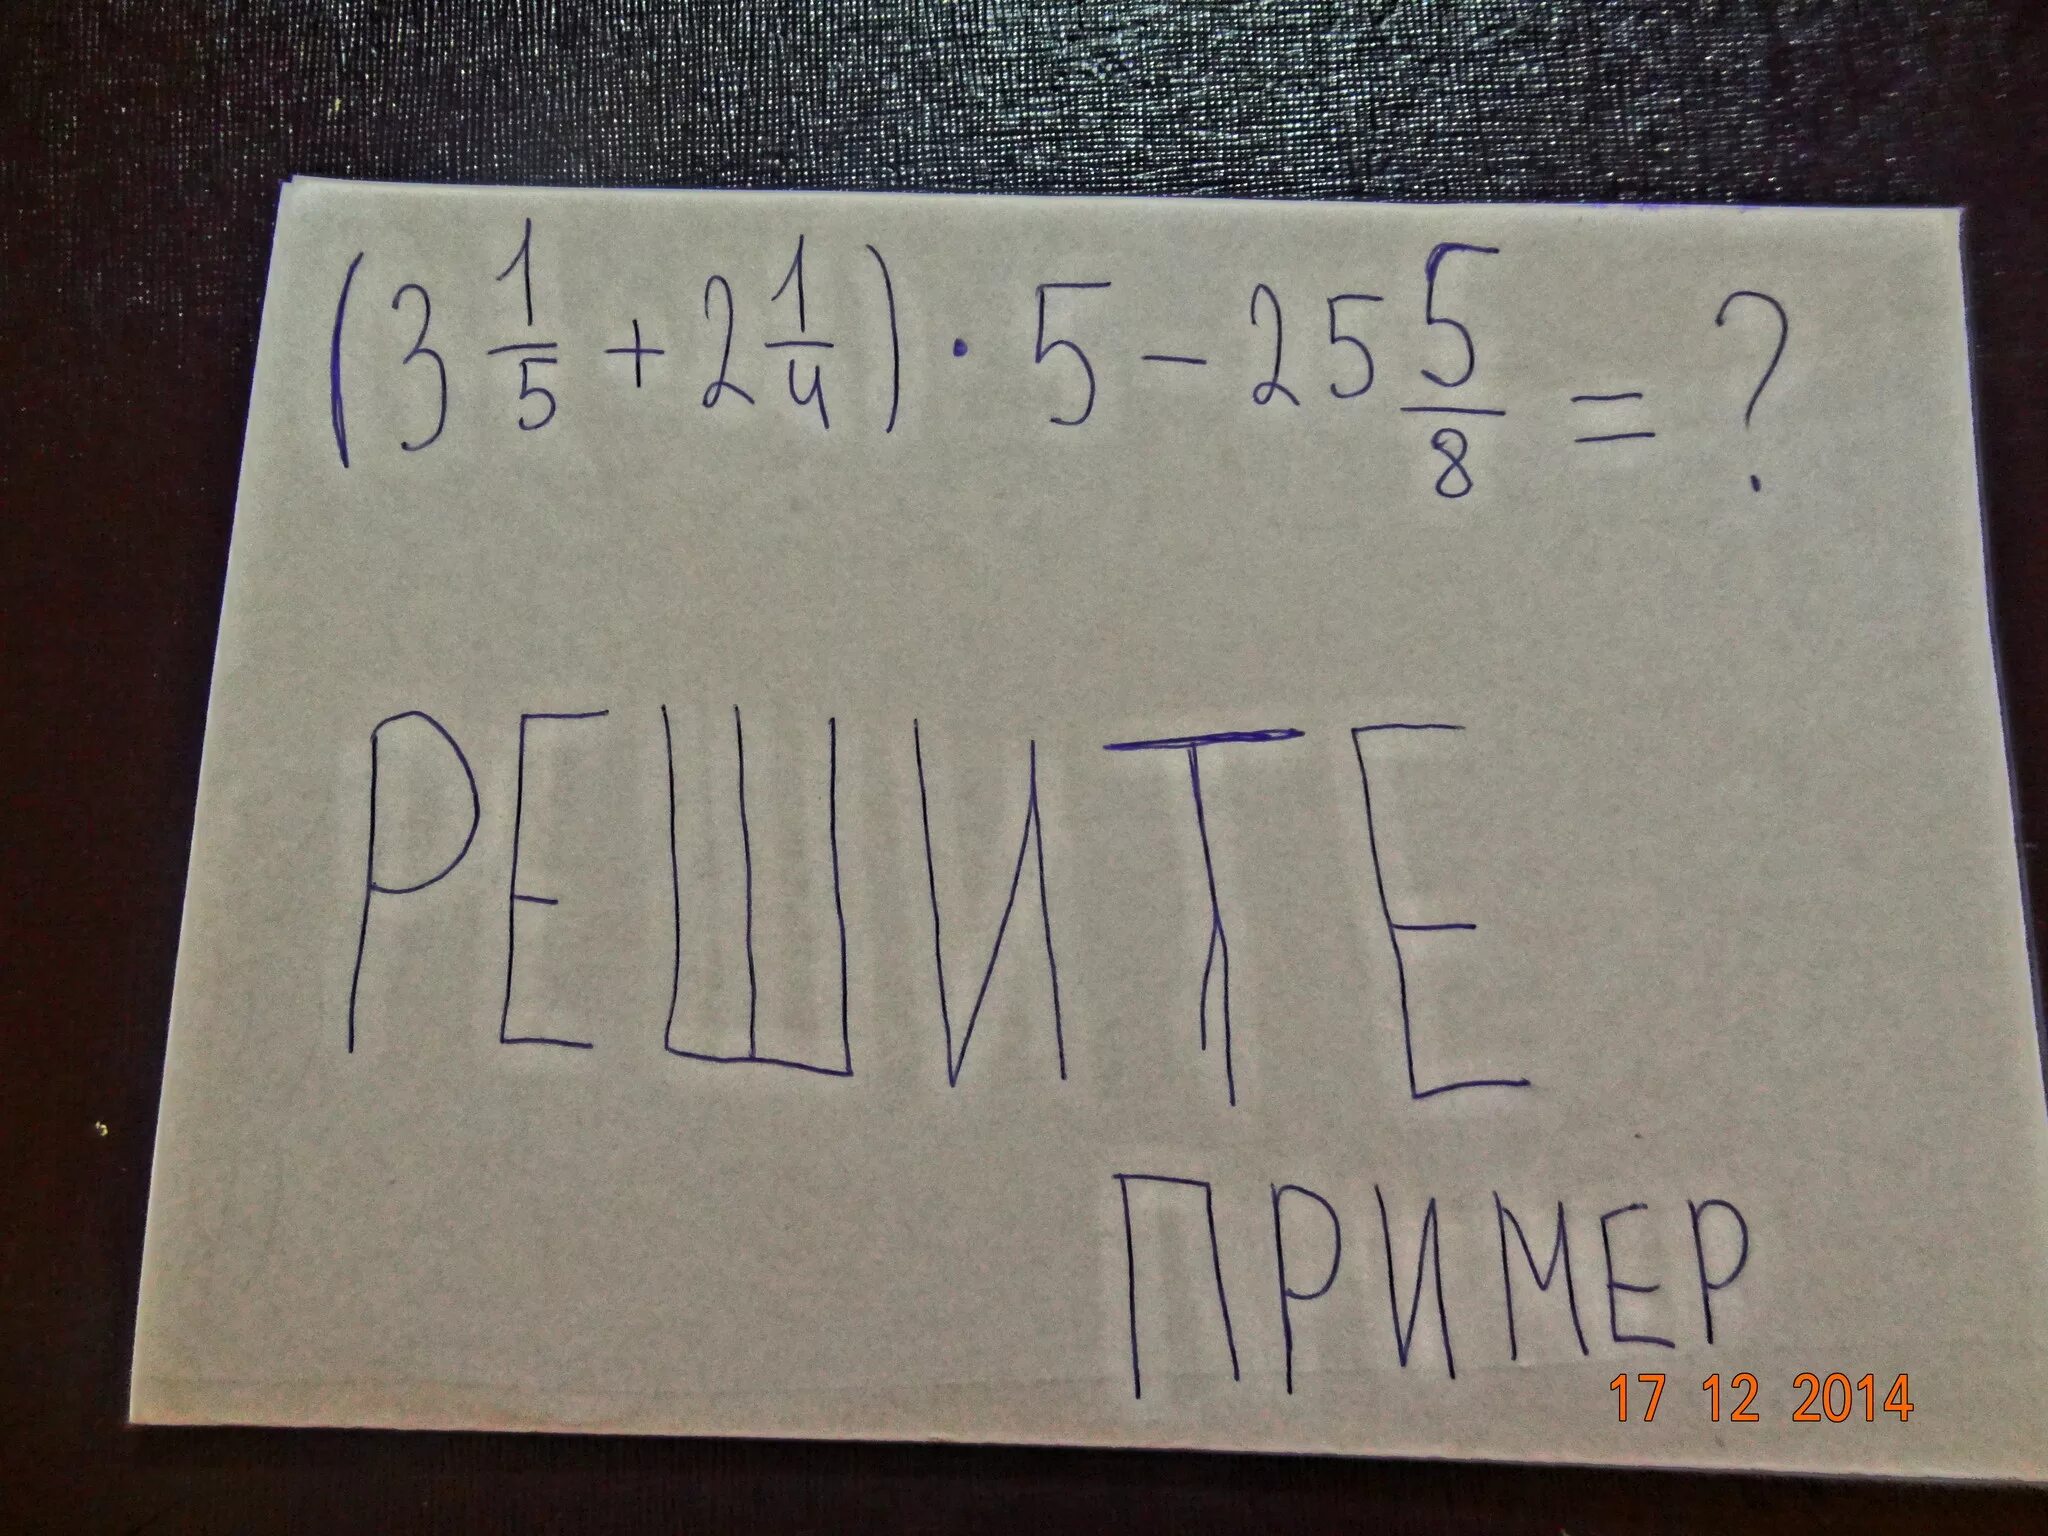 (3 1/5 + 2 1/4) · 5 - 25 5/8 = ?
РЕШИТЕ
ПРИМЕР
17 12 2014